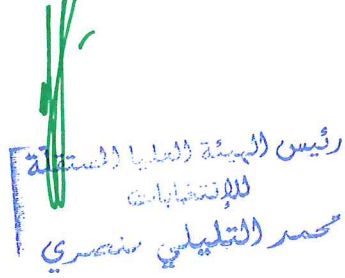 رئيس الهيئة العليا المستقلة
للإنتخابات
محمد التليلي منصري